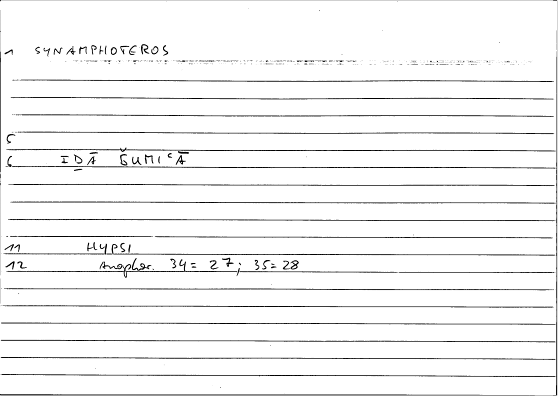 1 SYNAMPHOTEROS
5
6 IḎĀ ǦUMIʿĀ
11 HYPSI
12 Anaphor. 34 = 27; 35 = 28